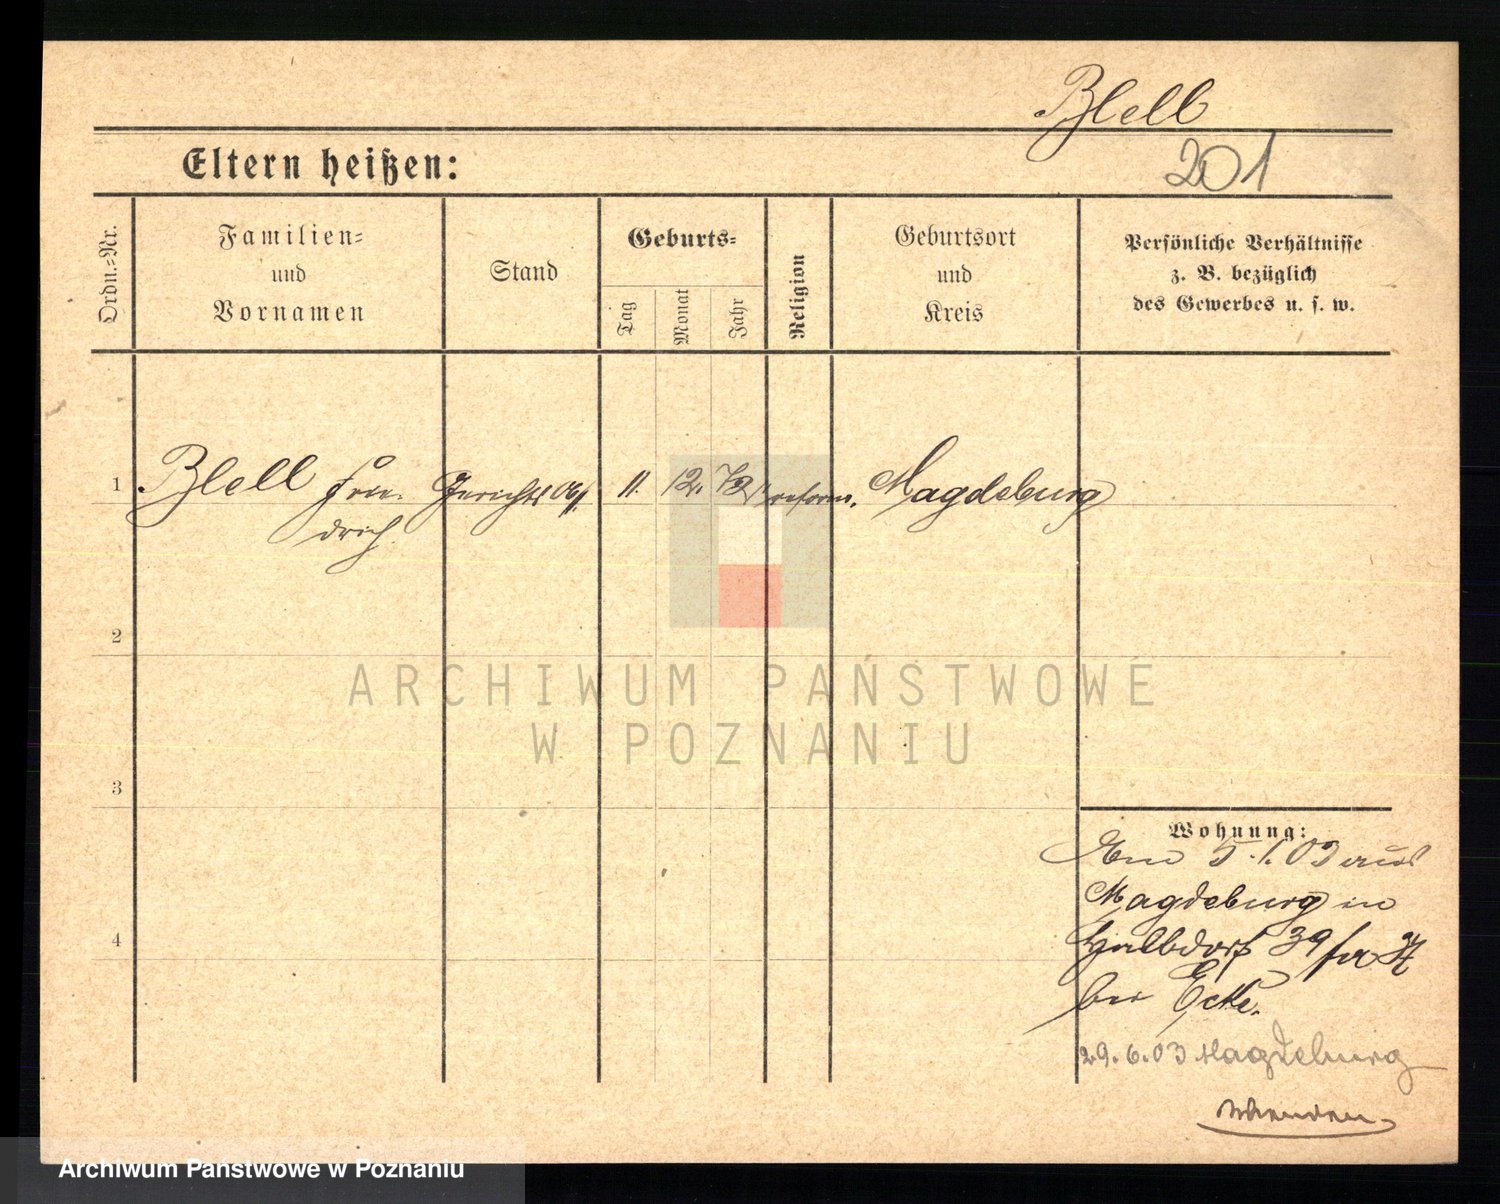 Blell
Eltern heißen:
201
Ordn.-Nr.
Familien-
und
Vornamen
Stand
Geburts-
Tag
Monat
Jahr
Religion
Geburtsort
und
Kreis
Persönliche Verhältnisse
z. B. bezüglich
des Gewerbes u. s. w.
1
Blell Frie-
drich
11.
12.
72
reform.
Magdeburg
2
3
4
ARCHIWUM PAŃSTWOWE
W POZNANIU
Wohnung:
5.1.03 aus
Magdeburg in
Halbdorf 39
bei Ecke.
29.6.03 Magdeburg
Archiwum Państwowe w Poznaniu